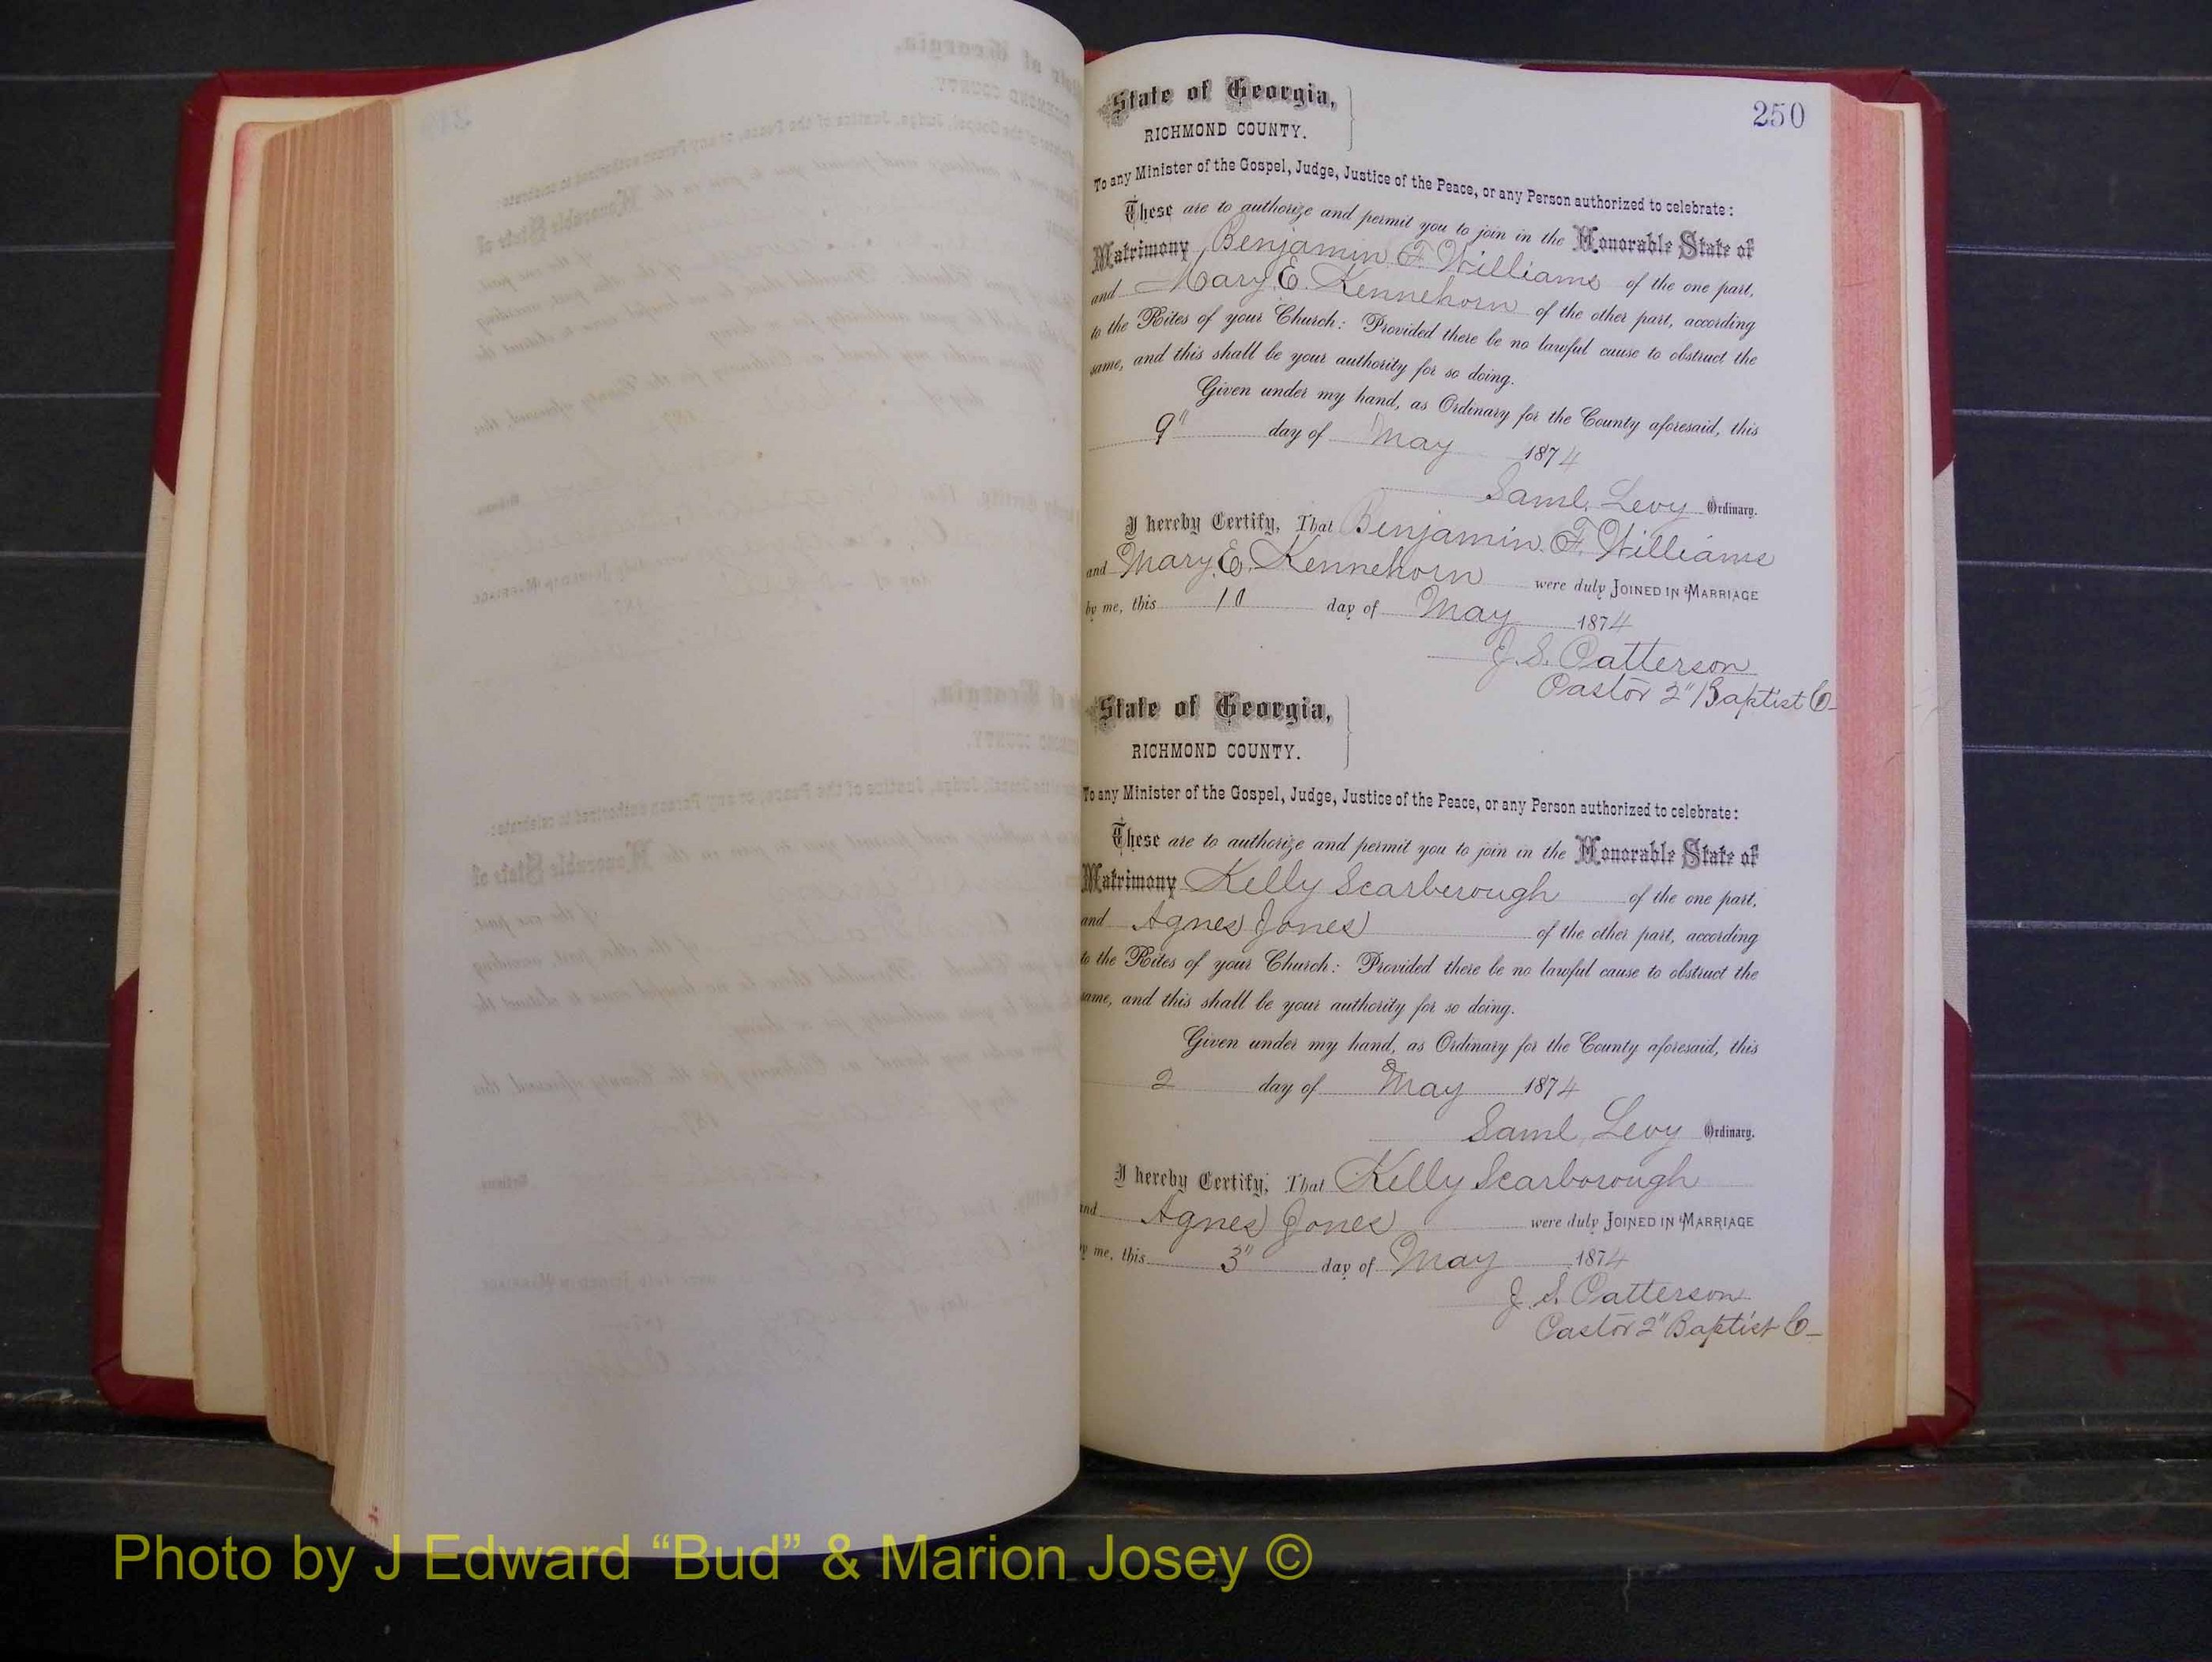 250
State of Georgia,
RICHMOND COUNTY.
To any Minister of the Gospel, Judge, Justice of the Peace, or any Person authorized to celebrate:
These are to authorize and permit you to join in the Honorable State of
Matrimony Benjamin F. Williams of the one part,
and Mary E. Kennehorn of the other part, according
to the Rites of your Church: Provided there be no lawful cause to obstruct the
same, and this shall be your authority for so doing.
Given under my hand, as Ordinary for the County aforesaid, this
9" day of May 1874
Saml. Levy Ordinary.
I hereby Certify, That Benjamin F. Williams
and Mary E. Kennehorn were duly JOINED IN MARRIAGE
by me, this 10 day of May 1874
J. S. Patterson
Pastor 2" Baptist C
State of Georgia,
RICHMOND COUNTY.
To any Minister of the Gospel, Judge, Justice of the Peace, or any Person authorized to celebrate:
These are to authorize and permit you to join in the Honorable State of
Matrimony Kelly Scarberough of the one part,
and Agnes Jones of the other part, according
to the Rites of your Church: Provided there be no lawful cause to obstruct the
same, and this shall be your authority for so doing.
Given under my hand, as Ordinary for the County aforesaid, this
2 day of May 1874
Saml. Levy Ordinary.
I hereby Certify, That Kelly Scarborough
and Agnes Jones were duly JOINED IN MARRIAGE
by me, this 3" day of May 1874
J. S. Patterson
Pastor 2" Baptist C
Photo by J Edward “Bud” & Marion Josey ©